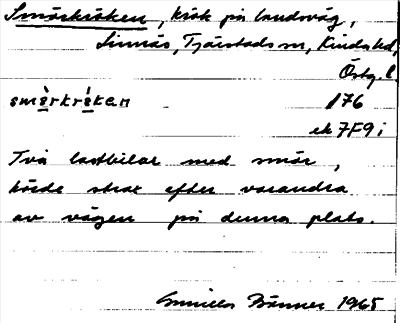 Smörkröken, krök på landsväg,
Sinnäs, Tjärstads sn, Kinds hd,
Östg. l.
smö̀rkrö̀ken 176
ek 7F9i
Två lastbilar med smör,
körde strax efter varandra
av vägen på denna plats.
Gunilla Bänner 1965